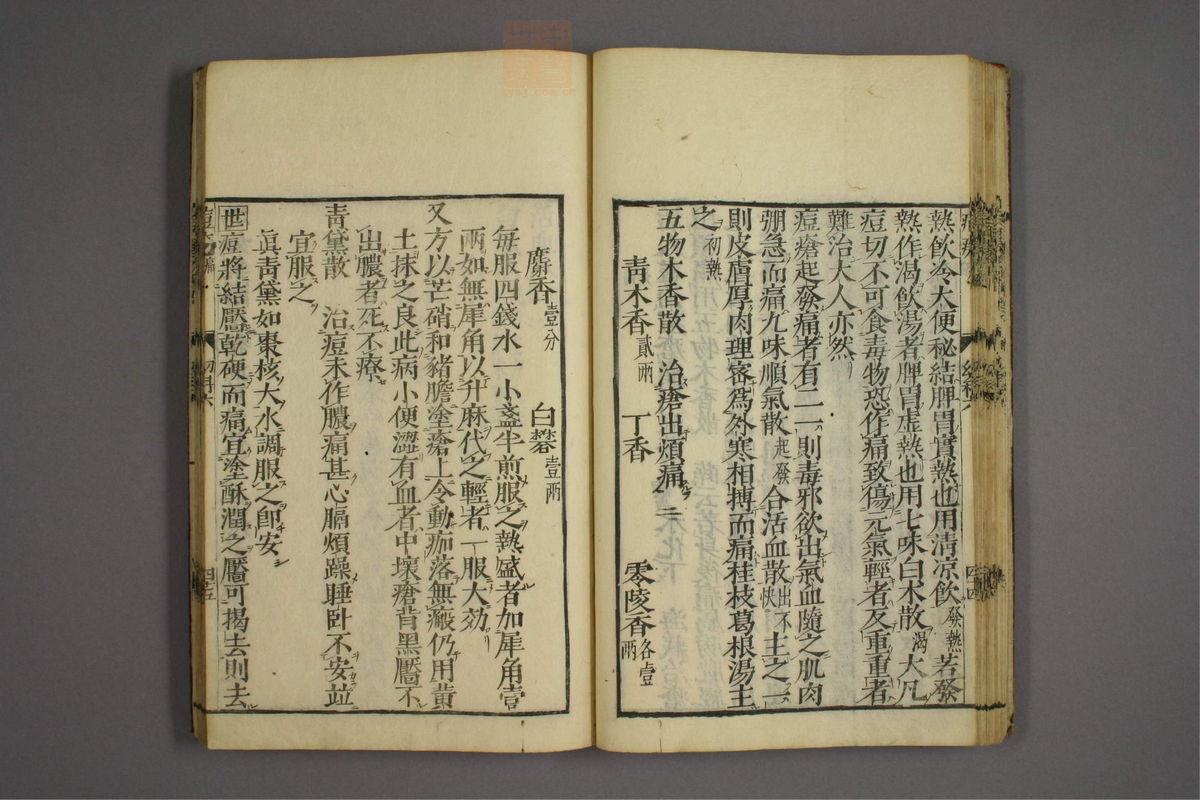 熱飲冷大便秘結脾胃實熱也用清凉飲發熱若發
熱作渴飲湯者脾胃虛熱也用七味白木散渴大凡
痘切不可食毒物恐作痛致傷元氣輕者反重重者
難治大人亦然
痘瘡起發痛者有二一則毒邪欲出氣血隨之肌肉
弸急而痛九味順氣散起發合活血散出不快主之一
則皮膚厚肉理密爲外寒相搏而痛桂枝葛根湯主
之初熱
五物木香散 治瘡出煩痛
青木香貳兩 丁香 零陵香各壹兩
麝香壹分 白礬壹兩
每服四錢水一小盞半煎服之熱盛者加犀角壹
兩如無犀角以升麻代之輕者一服大効
又方以芒硝和豬膽塗瘡上令動痂落無瘢仍用黄
土抹之良此病小便澀有血者中壞瘡背黑靨不
出膿者死不療
青黛散 治痘未作膿痛甚心膈煩躁睡卧不安竝
宜服之
眞青黛如棗核大水調服之卽安
世痘將結靨乾硬而痛宜塗酥潤之靨可揭去則去